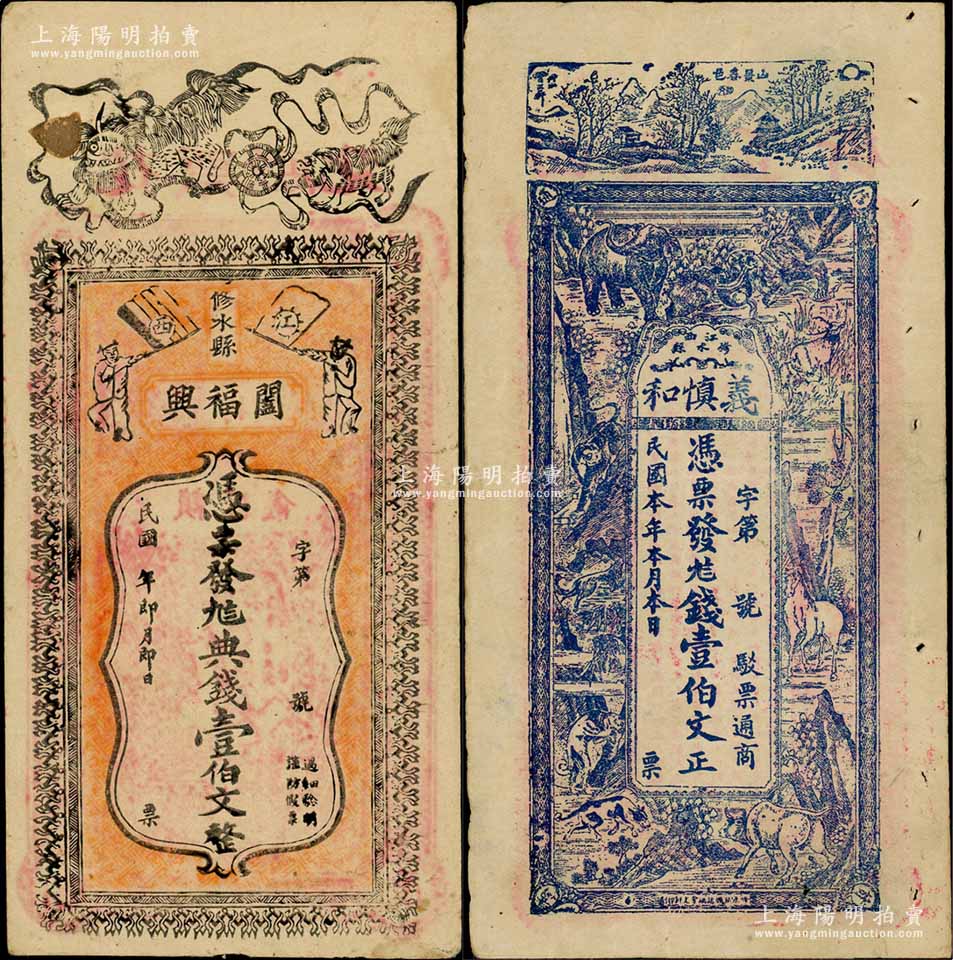 上海陽明拍賣
www.yangmingauction.com
江西
修水縣
闔福興
字第 號
憑票發兌典錢壹伯文整
民國 年即月即日 票
過細驗明
謹防假票
上海陽明拍賣
www.yangmingauction.com
山景春色
江西
修水縣
義慎和
字第 號 駁票通商
憑票發兌錢壹伯文正
民國本年本月本日 票
上海陽明拍賣
www.yangmingauction.com